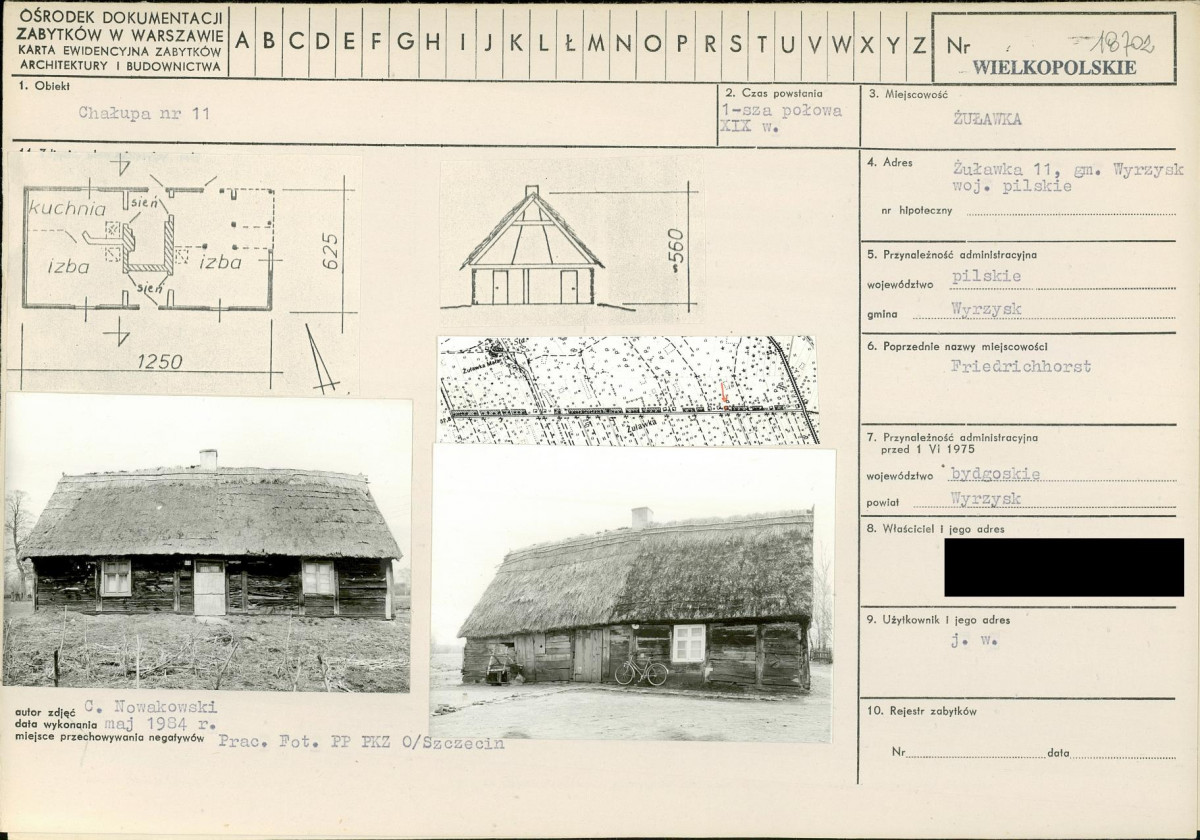 OŚRODEK DOKUMENTACJI
ZABYTKÓW W WARSZAWIE
KARTA EWIDENCYJNA ZABYTKÓW
ARCHITEKTURY I BUDOWNICTWA
A B C D E F G H I J K L Ł M N O P R S T U V W X Y Z
Nr 18702
WIELKOPOLSKIE
1. Obiekt
Chałupa nr 11
2. Czas powstania
1-sza połowa
XIX w.
3. Miejscowość
ŻUŁAWKA
4. Adres
Żuławka 11, gm. Wyrzysk
woj. pilskie
nr hipoteczny
5. Przynależność administracyjna
województwo pilskie
gmina Wyrzysk
6. Poprzednie nazwy miejscowości
Friedrichhorst
7. Przynależność administracyjna
przed 1 VI 1975
województwo bydgoskie
powiat Wyrzysk
8. Właściciel i jego adres
9. Użytkownik i jego adres
j. w.
10. Rejestr zabytków
Nr data
kuchnia
sień
izba
izba
sień
625
1250
560
Żuławka
autor zdjęć C. Nowakowski
data wykonania maj 1984 r.
miejsce przechowywania negatywów Prac. Fot. PP PKZ O/Szczecin